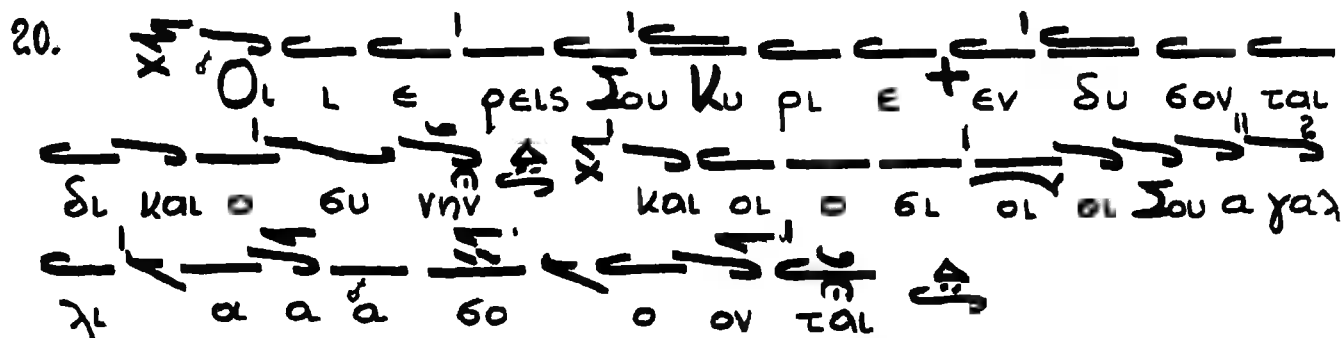 20. Οι ι ε ρεις Σου Κυ ρι ε εν δυ σον ται
δι και ο συ νην και οι ο σι οι οι Σου α γαλ
λι α α α σο ο ον ται